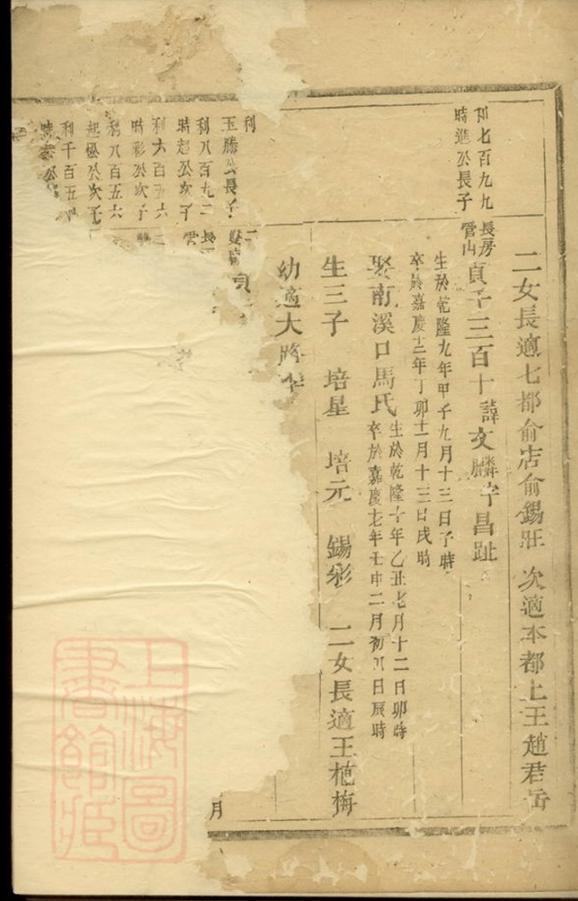 二女長適七都俞店俞錫莊 次適本都上王趙君岳
利七百九九
時進公長子
長房
管山
貞千三百十諱文麟字昌趾
生於乾隆九年甲子九月十三日子時
卒於嘉慶十二年丁卯十一月十三日戌時
娶南溪口馬氏
生於乾隆十年乙丑七月十二日卯時
卒於嘉慶十七年壬申二月初八日辰時
生三子 培星 培元 錫彩 二女長適王梔梅
幼適大
利
玉勝公長子
利八百九二
時起公次子
利六百五六
時彩公次子
利八百五六
起 公次子
利千百五
月
上海圖
書館藏